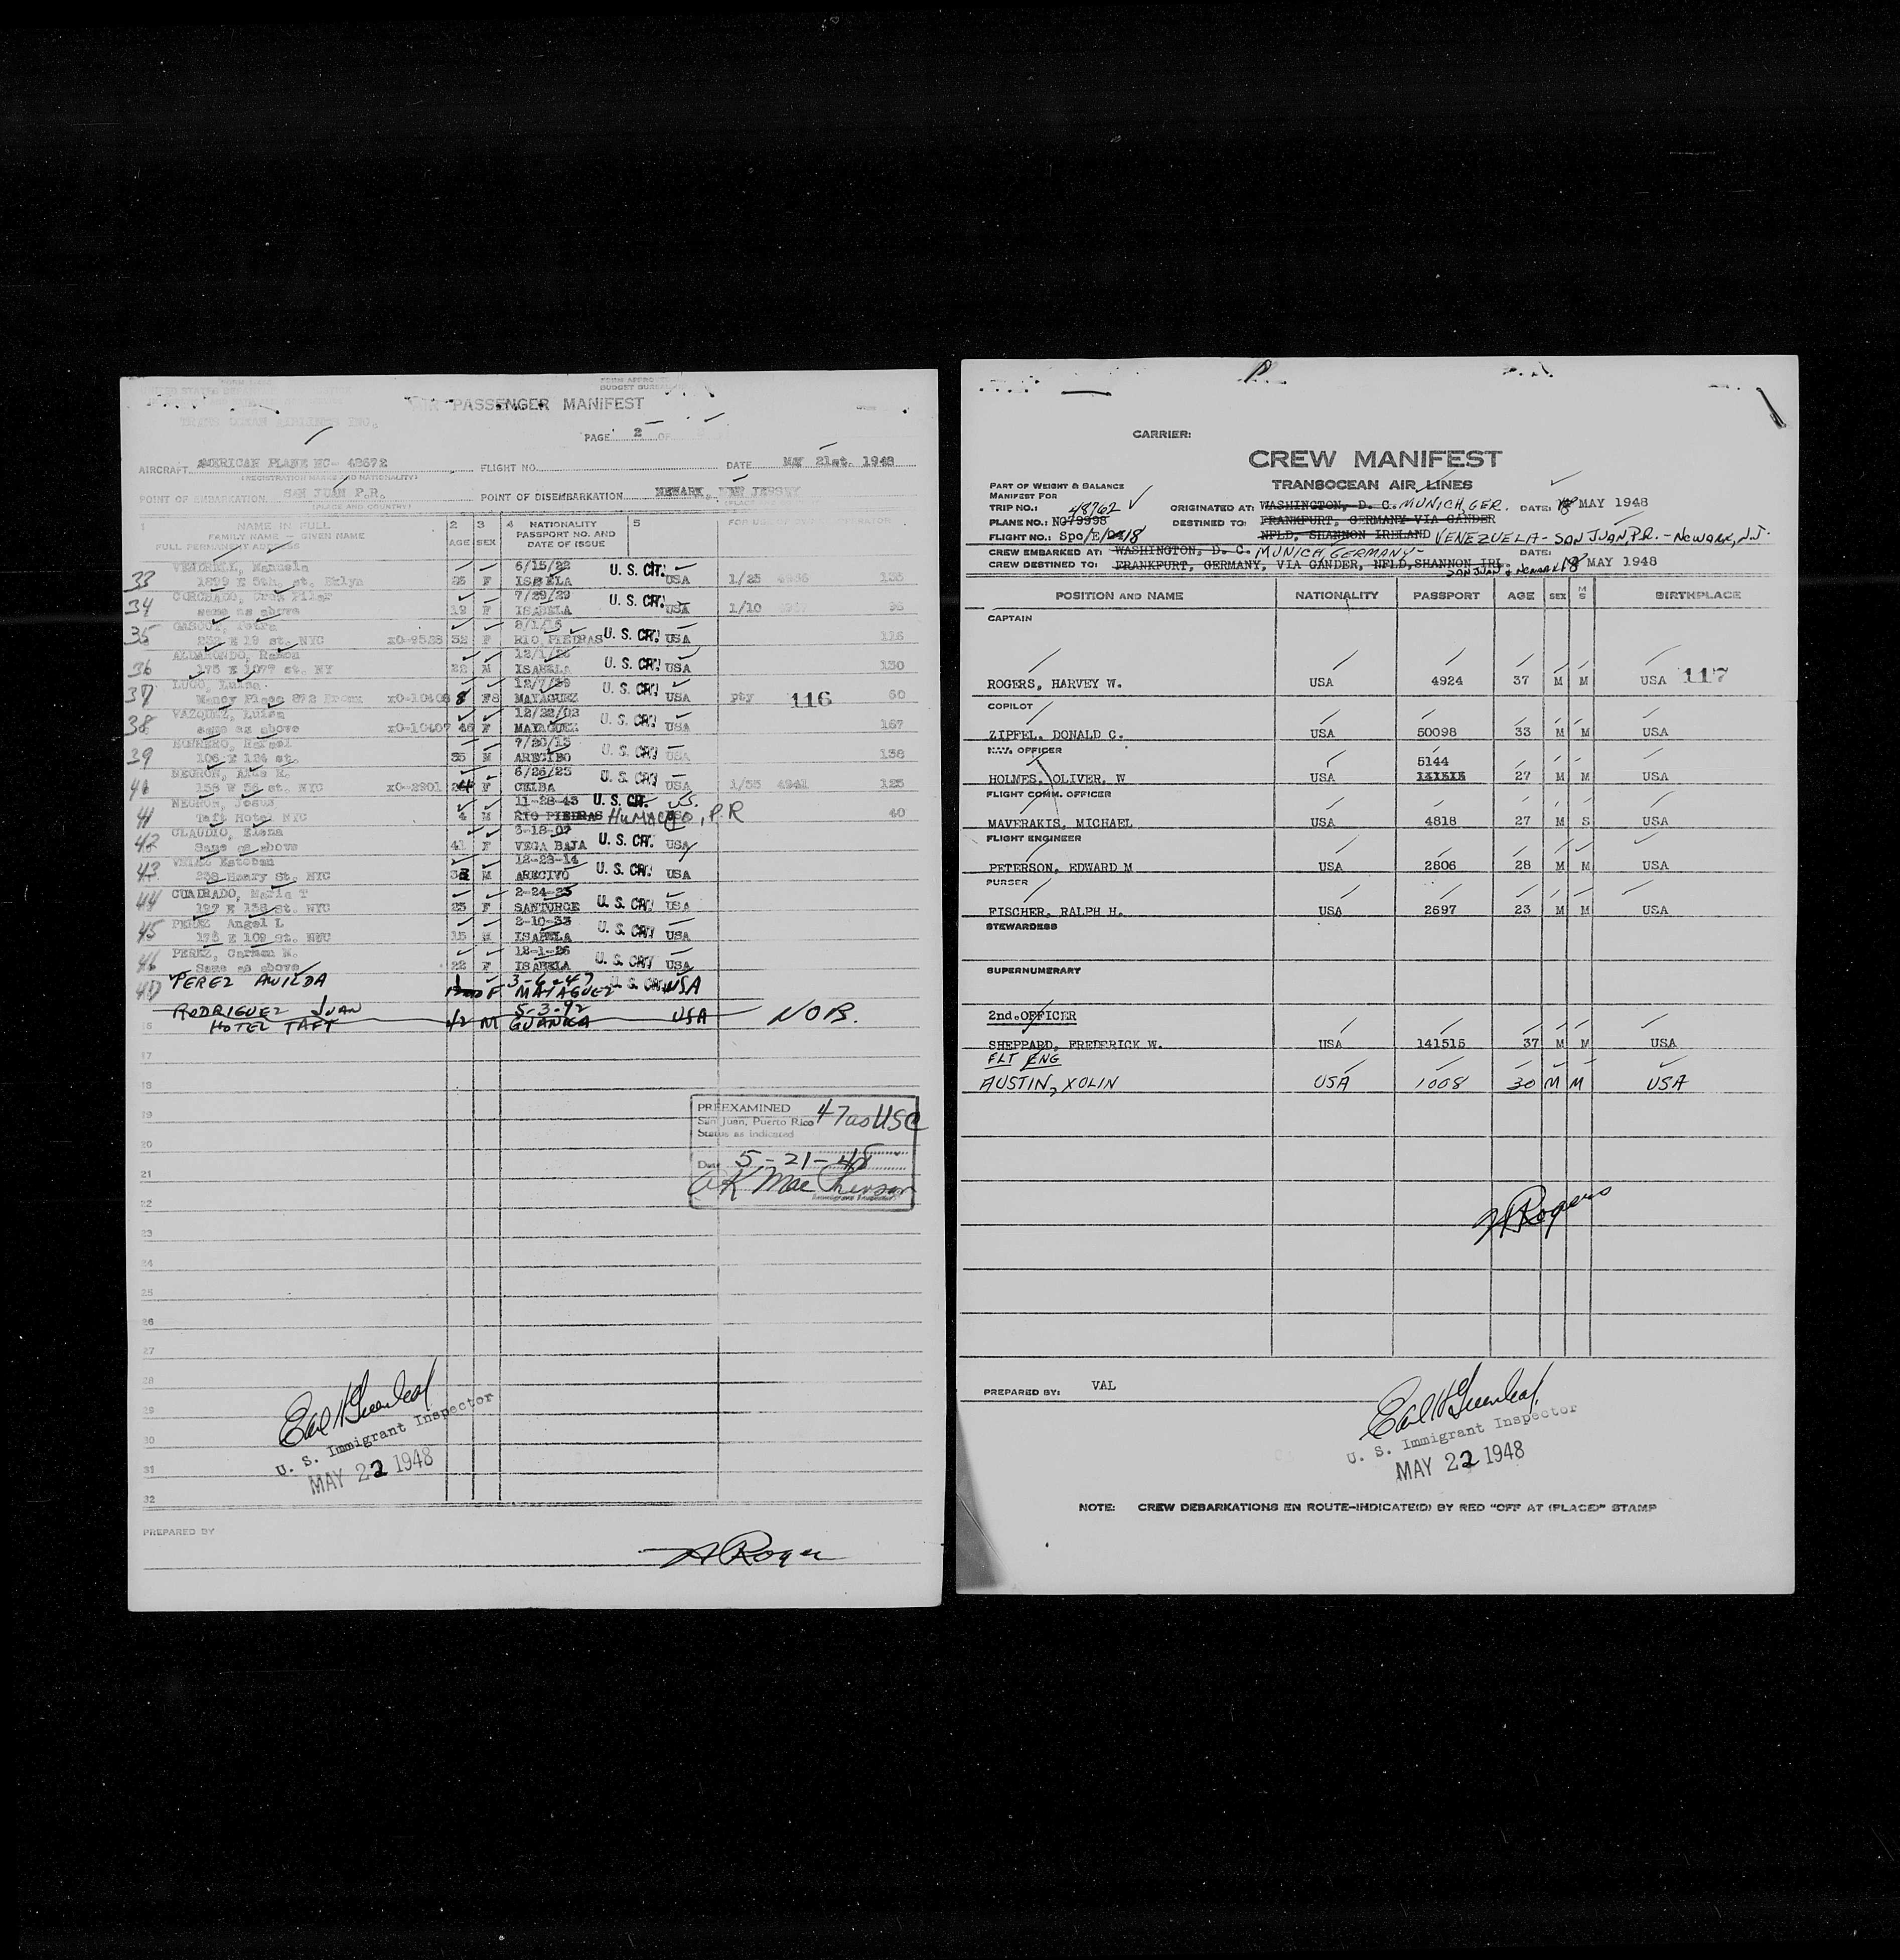 FORM APPRO
BUDGET BUREAU
AIR PASSENGER MANIFEST
TRANS OCEAN AIRLINES INC.
PAGE 2 OF
AIRCRAFT AMERICAN PLANE NC- 48672 FLIGHT NO. DATE MAY 21st. 1948
(REGISTRATION MARKS AND NATIONALITY)
POINT OF EMBARKATION SAN JUAN P.R. POINT OF DISEMBARKATION NEWARK, NEW JERSEY
(PLACE AND COUNTRY)
1 NAME IN FULL 2 3 4 NATIONALITY 5 FOR USE OF
FAMILY NAME — GIVEN NAME AGE SEX PASSPORT NO. AND
FULL PERMANENT ADDRESS DATE OF ISSUE
VENDRELL, Manuela 6/15/22 U. S. CIT.
33 1899 E 5th. st. Bklyn 25 F ISABELA USA 1/25 135
CORCHADO, Pilar 7/29/29 U. S. CIT.
34 same as above 19 F ISABELA USA 1/10 98
Petra 8/1/15
35 232 E 19 st. NYC x0-9538 32 F RIO PIEDRAS U. S. CIT. USA 116
ALDARONDO, Ramon 12/1/26
36 175 E 107 st. NY 22 M ISABELA U. S. CIT. USA 130
LUGO, Luisa 12/7/39
37 Place 872 Bronx x0-10408 8 F MAYAGUEZ U. S. CIT. USA pty 116 60
VAZQUEZ, Luisa 12/22/02
38 same as above x0-10407 46 F MAYAGUEZ U. S. CIT. USA 167
Rafael
39 106 E 124 st. 35 M ARECIBO U. S. CIT. USA 138
NEGRON, M. 6/26/23
40 138 W 36 st. NYC x0-2901 24 F CEIBA U. S. CIT. USA 1/35 4941 125
NEGRON, Jesus 11-28-43 U. S. CIT. U.S.
41 Taft Hotel NYC 4 M RIO PIEDRAS HUMACAO, P.R 40
CLAUDIO, Elena 3-18-07
42 Same as above 41 F VEGA BAJA U. S. CIT. USA
VELEZ Esteban 12-23-14
43 238 Henry St. NYC 33 M ARECIVO U. S. CIT. USA
CUADRADO, Maria T 2-24-25
44 127 E 138 St. NYC 23 F SANTURCE U. S. CIT. USA
PEREZ Angel L 2-10-33
45 175 E 109 St. NYC 15 M ISABELA U. S. CIT. USA
PEREZ, Carmen M. 12-1-26
46 Same as above 22 F ISABELA U. S. CIT. USA
47 PEREZ AWILDA 1 F 3-6-47 MAYAGUEZ U. S. CIT. USA
RODRIGUEZ JUAN 5-3-92
16 HOTEL TAFT 42 M GUANICA USA NOB.
17
18
19
20
21
22
23
24
25
26
27
28
29
30
31
32
PREEXAMINED
San Juan, Puerto Rico 47 as USC
Status as indicated
Date 5-21-48
A K MacPherson
Immigrant Inspector
Earl H Greenleaf
U. S. Immigrant Inspector
MAY 22 1948
PREPARED BY
H Rogers
CARRIER:
CREW MANIFEST
TRANSOCEAN AIR LINES
PART OF WEIGHT & BALANCE
MANIFEST FOR
TRIP NO.: 48762 ORIGINATED AT: WASHINGTON, D. C. MUNICH, GER. DATE: 18 MAY 1948
PLANE NO.: NC79998 DESTINED TO: FRANKFURT, GERMANY VIA GANDER
FLIGHT NO.: Spc/E/ 18 NFLD, SHANNON IRELAND VENEZUELA - SAN JUAN, P.R. - NEWARK, N.J.
CREW EMBARKED AT: WASHINGTON, D. C. MUNICH, GERMANY - DATE:
CREW DESTINED TO: FRANKFURT, GERMANY, VIA GANDER, NFLD, SHANNON IRL. SAN JUAN & NEWARK 18 MAY 1948
POSITION AND NAME NATIONALITY PASSPORT AGE SEX M S BIRTHPLACE
CAPTAIN
ROGERS, HARVEY W. USA 4924 37 M M USA 117
COPILOT
ZIPFEL, DONALD C. USA 50098 33 M M USA
NAV. OFFICER 5144
HOLMES, OLIVER, W USA 141515 27 M M USA
FLIGHT COMM. OFFICER
MAVERAKIS, MICHAEL USA 4818 27 M S USA
FLIGHT ENGINEER
PETERSON, EDWARD M USA 2806 28 M M USA
PURSER
FISCHER, RALPH H. USA 2697 23 M M USA
STEWARDESS
SUPERNUMERARY
2nd. OFFICER
SHEPPARD, FREDERICK W. USA 141515 37 M M USA
FLT ENG
AUSTIN, XOLIN USA 1008 30 M M USA
H Rogers
PREPARED BY: VAL
Earl H Greenleaf
U. S. Immigrant Inspector
MAY 22 1948
NOTE: CREW DEBARKATIONS EN ROUTE-INDICATE(D) BY RED "OFF AT (PLACE)" STAMP